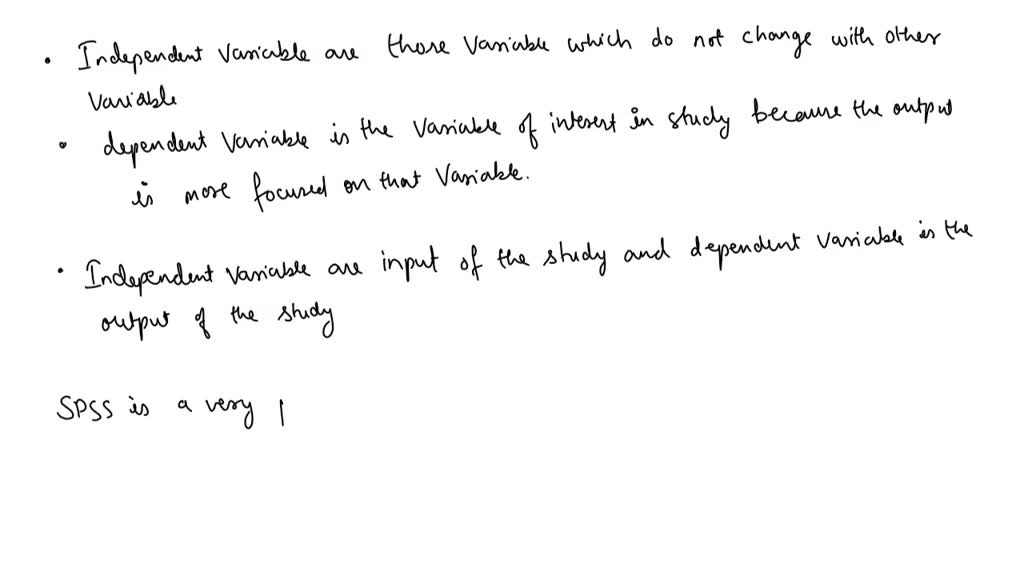 • Independent Variable are those Variable which do not change with other
Variable
• dependent Variable is the Variable of interest in study because the output
is more focused on that Variable.
• Independent Variable are input of the study and dependent Variable is the
output of the study
SPSS is a very